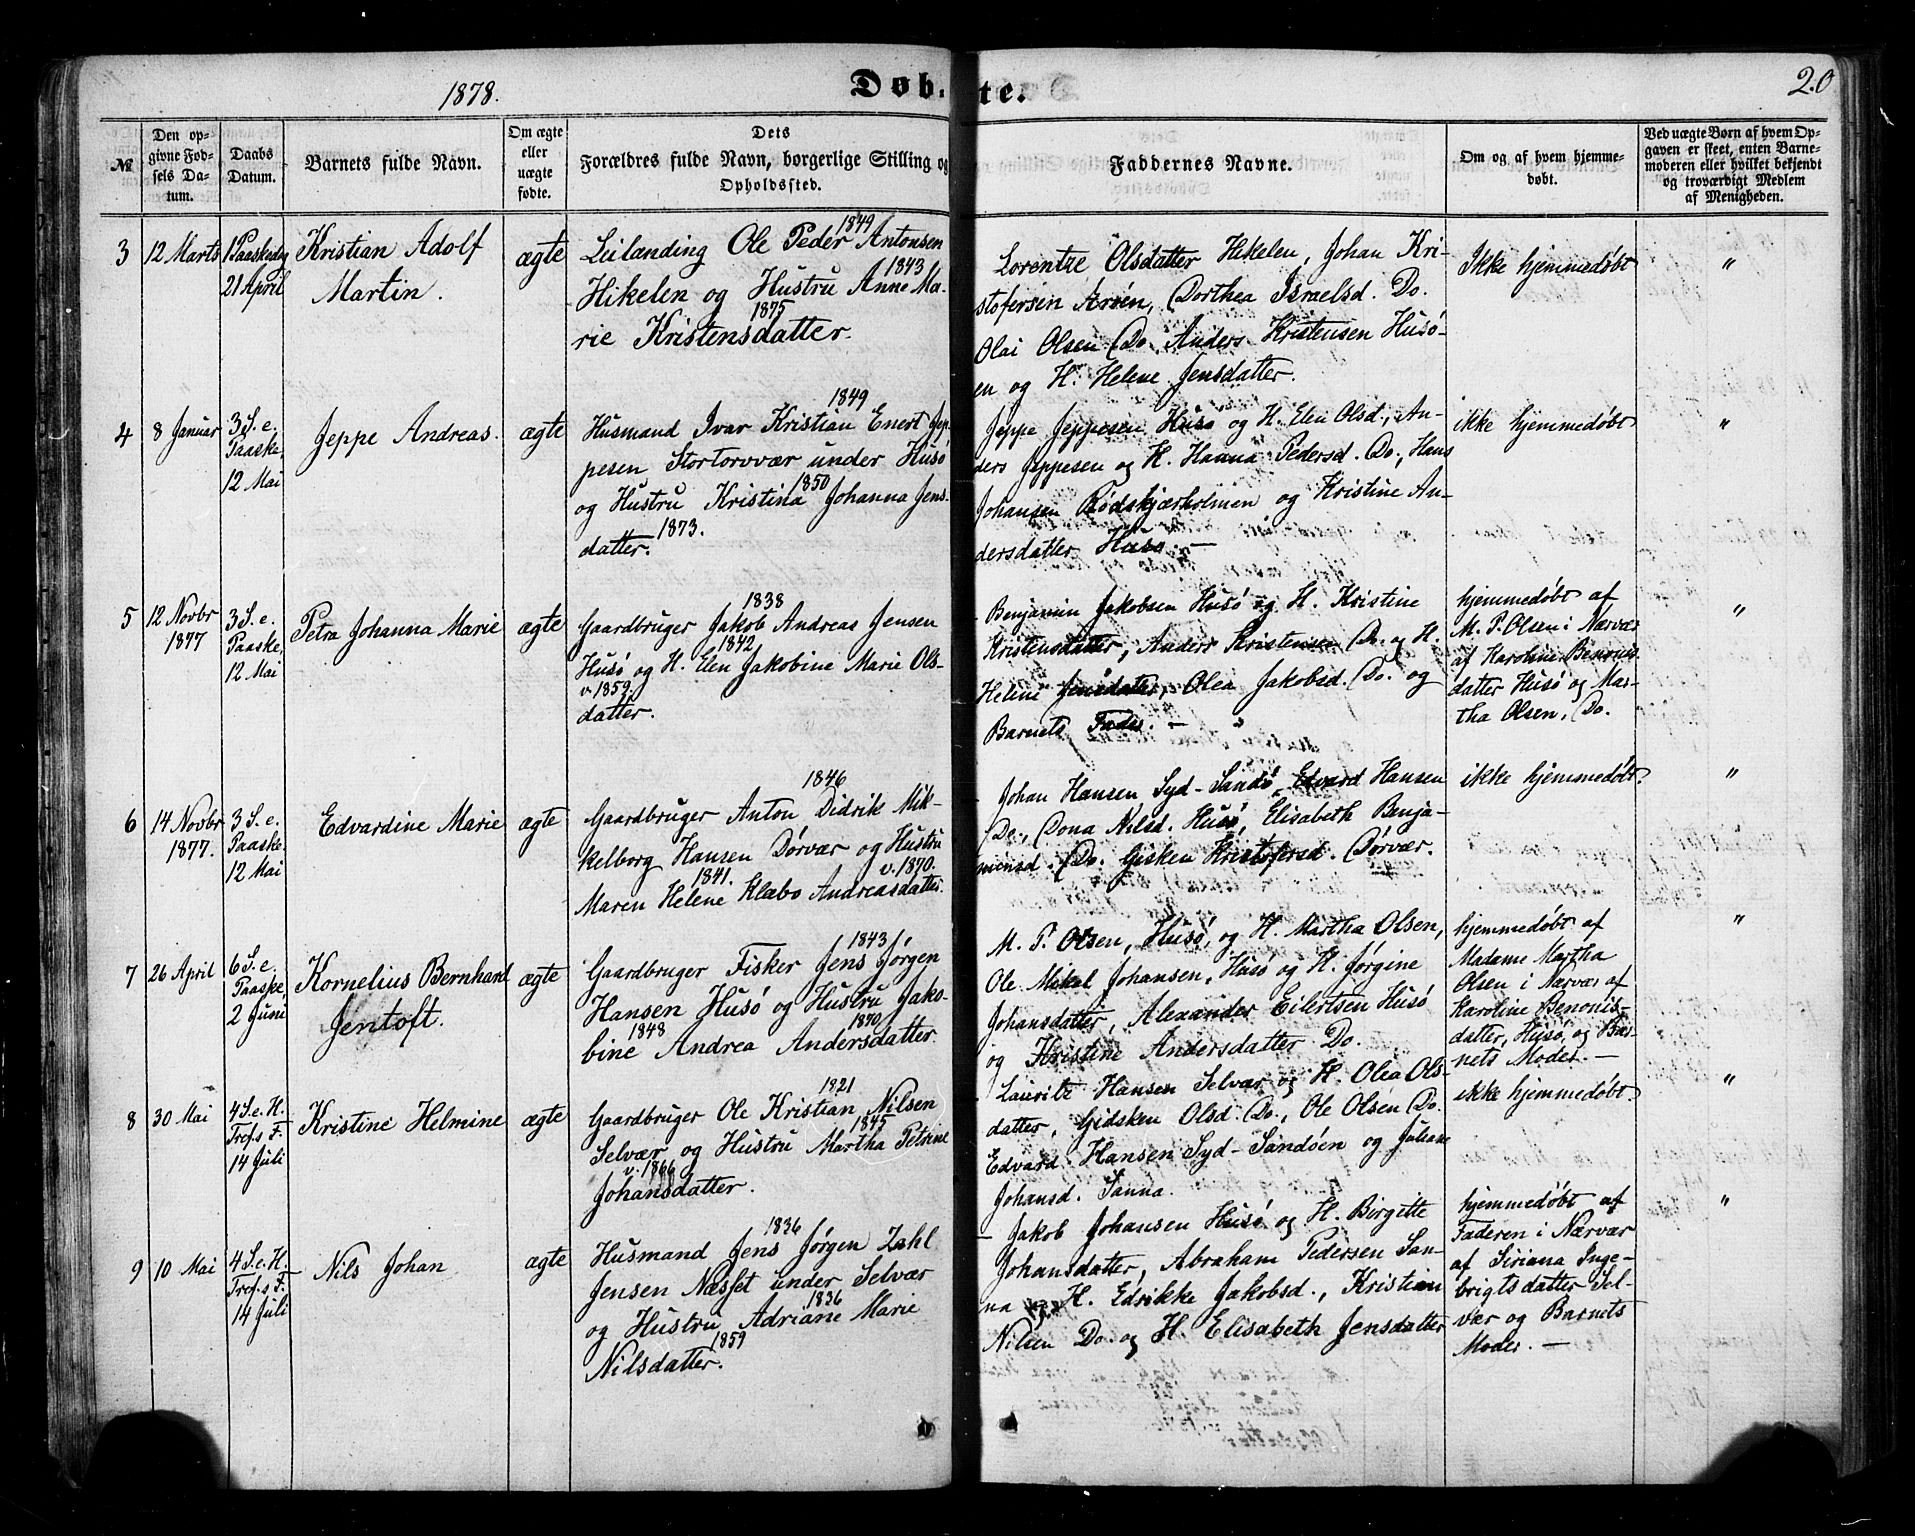 1878.
Döb-te.
20
№
Den op-
givne Fød-
sels Da-
tum.
Daabs
Datum.
Barnets fulde Navn.
Om ægte
eller
uægte
fødte.
Dets
Forældres fulde Navn, borgerlige Stilling og
Opholdssted.
Faddernes Navne.
Om og af hvem hjemme-
døbt.
Ved uægte Børn af hvem Op-
gaven er skeet, enten Barne-
moderen eller hvilket bekjendt
og troværdigt Medlem
af Menigheden.
3
12 Marts
1 Paaskedag
21 April
Kristian Adolf
Martin.
ægte
1849
Leilanding Ole Peder Antonsen
1843
Hikelen og Hustru Anne Ma-
1875
rie Kristensdatter.
Lorentze Olsdatter Hikelen, Johan Kri-
stofersen Arøen, Dorthea Israelsd. Do.
Olai Olsen Do. Anders Kristensen Husø-
en og H. Helene Jensdatter.
Ikke hjemmedøbt
"
4
8 Januar
3 S. e.
Paaske,
12 Mai
Jeppe Andreas.
ægte
1849
Husmand Ivar Kristian Enert Jep-
pesen Stortorvær under Husø
1850
og Hustru Kristina Johanna Jens-
1873.
datter.
Jeppe Jeppesen Husø og H. Elen Olsd., An-
ders Jeppesen og H. Hanna Pedersd. Do., Hans
Johansen Rødskjærholmen og Kristine An-
dersdatter Husø. —
ikke hjemmedøbt
"
5
12 Novbr
1877
3 S. e.
Paaske,
12 Mai
Petra Johanna Marie
ægte
1838
Gaardbruger Jakob Andreas Jensen
1842
Husø og H. Elen Jakobine Marie Ols-
v. 1859.
datter.
Benjamin Jakobsen Husø og H. Kristine
Kristensdatter, Anders Kristensen Do. og H.
Helene Jensdatter, Olea Jakobsd. Do. og
Barnets Fader. —
hjemmedøbt af
M. P. Olsen i Nærvær
af Karoline Benonis-
datter Husø og Mar-
tha Olsen, Do.
"
6
14 Novbr
1877.
3 S. e.
Paaske.
12 Mai
Edvardine Marie
ægte
1846
Gaardbruger Anton Didrik Mik-
kelborg Hansen Dørvær og Hustru
1841. v. 1870.
Maren Helene Klæbo Andreasdatter.
Johan Hansen Syd-Sandø, Edvard Hansen
Do., Dona Nilsd. Husø, Elisabeth Benja-
minsd. Do. Gisken Kristofersd. Dørvær.
ikke hjemmedøbt.
"
7
26 April
6 S. e.
Paaske,
2 Juni
Kornelius Bernhard
Jentoft.
ægte
1843
Gaardbruger Fisker Jens Jørgen
Hansen Husø og Hustru Jako-
1848 1870.
bine Andrea Andersdatter.
M. P. Olsen, Husø, og H. Martha Olsen,
Ole Mikal Johansen, Husø og H. Jørgine
Johansdatter, Alexander Eilertsen Husø
og Kristine Andersdatter Do.
hjemmedøbt af
Madame Martha
Olsen i Nærvær af
Karoline Benonis-
datter, Husø, og Bar-
nets Moder. —
"
8
30 Mai
4 S. e. H.
Tref.s F.
14 Juli
Kristine Helmine
ægte
1821
Gaardbruger Ole Kristian Nilsen
1845
Selvær og Hustru Martha Petrine
v. 1866
Johansdatter.
Lauritz Hansen Selvær og H. Olea Ols-
datter, Gidsken Olsd. Do., Ole Olsen Do.
Edvard Hansen Syd-Sandøen og Juliane
Johansd. Sanna.
ikke hjemmedøbt.
"
9
10 Mai
4 S. e. H.
Tref.s F.
14 Juli
Nils Johan
ægte
1836
Husmand Jens Jørgen Zahl
Jensen Næsset under Selvær
1836
og Hustru Adriane Marie
1859
Nilsdatter.
Jakob Johansen Husø og H. Birgitte
Johansdatter, Abraham Pedersen San-
na og H. Edrikke Jakobsd., Kristian
Nilsen Do. og H. Elisabeth Jensdatter
hjemmedøbt af
Faderen i Nærvær
af Siriana Inge-
brigtsdatter Sel-
vær og Barnets
Moder. —
"